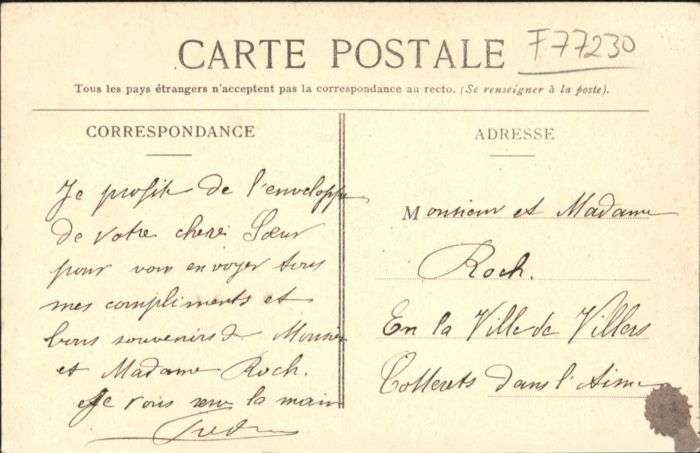 CARTE POSTALE
F77230
Tous les pays étrangers n'acceptent pas la correspondance au recto. (Se renseigner à la poste).
CORRESPONDANCE
Je profite de l'enveloppe
de votre chere Sœur
pour vous envoyer tous
mes compliments et
bons souvenirs de Monsieur
et Madame Roch.
Je vous serre la main
ADRESSE
Monsieur et Madame
Roch.
En la Ville de Villers
Cotterets dans l'Aisne